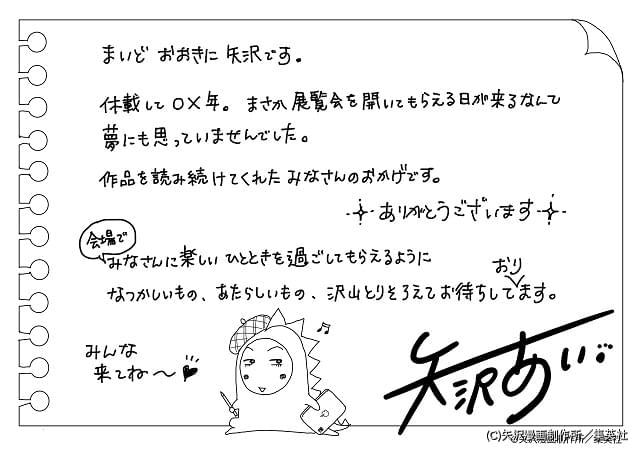 まいど おおきに 矢沢です。
休載して〇×年。まさか展覧会を開いてもらえる日が来るなんて
夢にも思っていませんでした。
作品を読み続けてくれた みなさんのおかげです。
ありがとうございます
会場で
みなさんに楽しい ひとときを過ごしてもらえるように
おり
なつかしいもの、あたらしいもの、沢山とりそろえてお待ちしてます。
みんな
来てね〜
矢沢あい
(C)矢沢漫画制作所／集英社